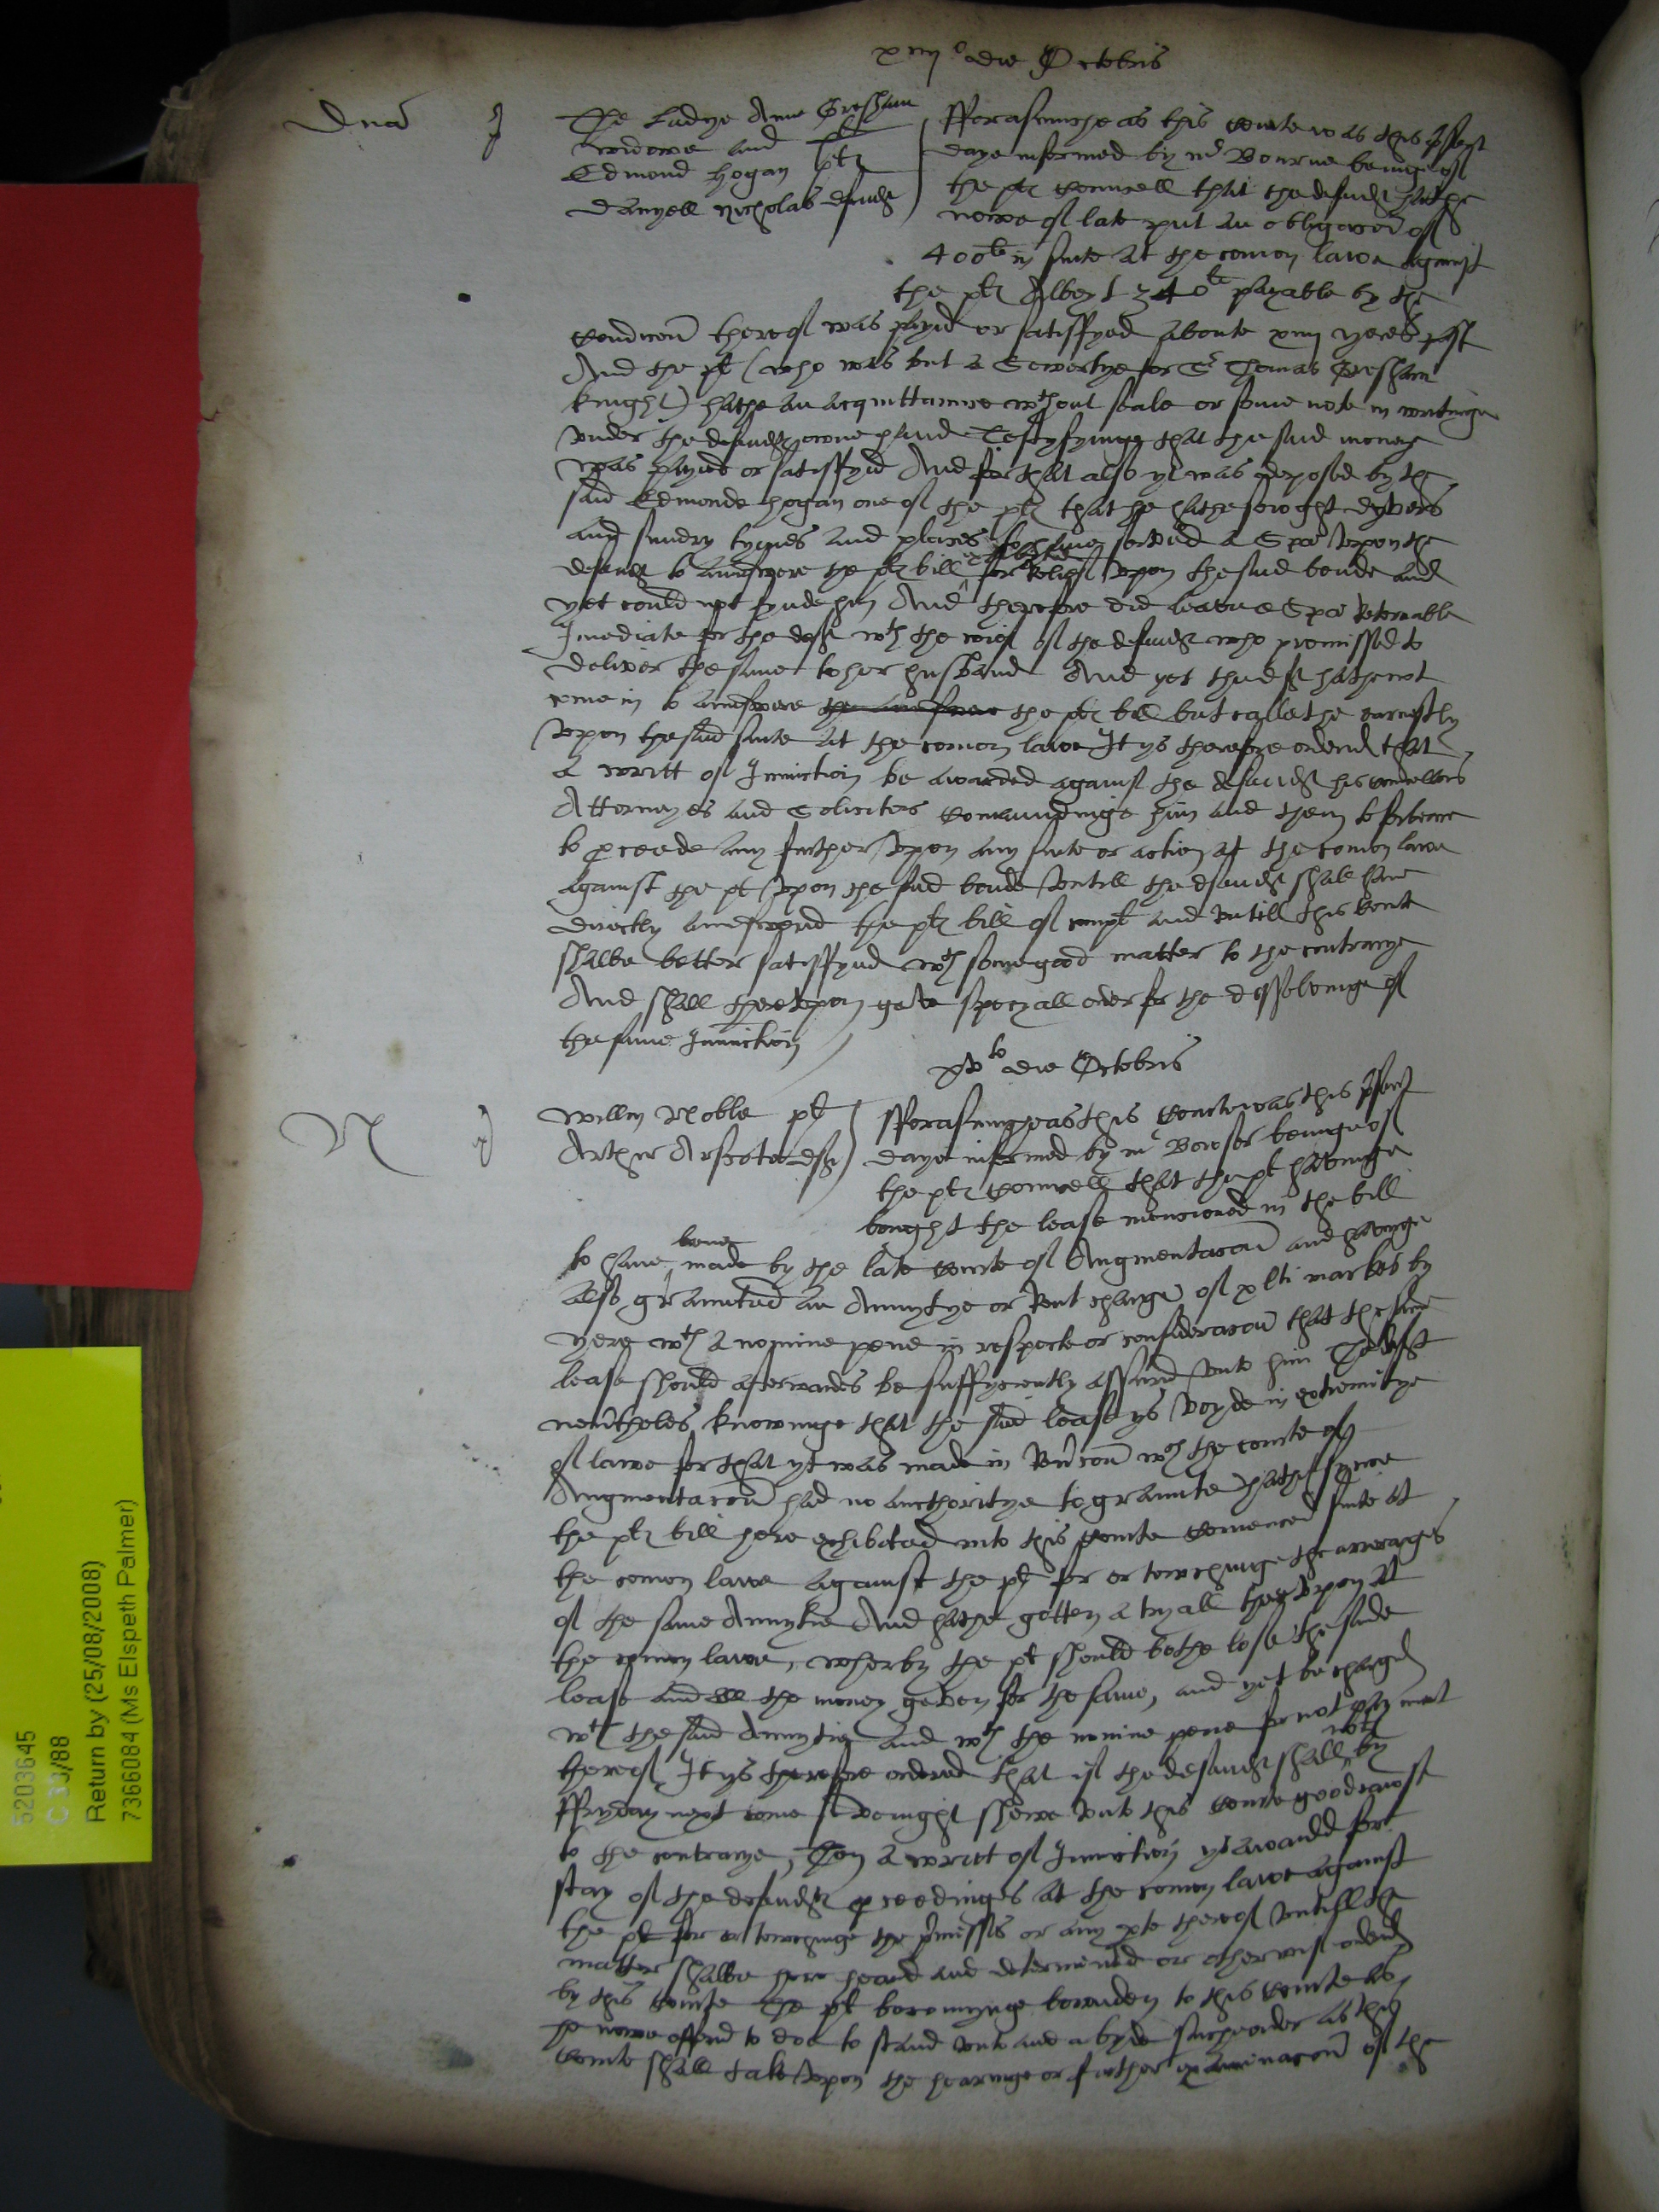 xiiij o die Octobris
Dna
The Ladye Anne Gresham
widowe and
Edmond Hogan plts
Danyell Nicholas defendt
Fforasmuche as this Courte was this psent
daye informed by mr Bourne beinge of
the plts Councell that the defendt hathe
nowe of late put an obligacon of
400li in suite at the comon lawe against
the plts Albeyt 340li payable by the
condicon thereof was payed or satisffyed aboute xiiij yeres past
And the plt (who was but a Sewertye for Sr Thomas Gresham
knight) hathe an acquittaunce wthout seale or some note in writinge
under the defendts owne hand Testyfyinge that the said money
was payed or satisffyed And for that also yt was deposed by the
said Edmonde Hogan one of the plts that he hathe sought dyvers
and sundry tymes and places to have served a Spa vpon the
defendt to aunswere the plts bill exhibited for Relief vpon the said bonde and
yet could not fynde him And therefore did leave a Spa Retornable
Imediate for the deft wth the wief of the defendt who promissed to
deliver the same to her husband And yet the deft hathe not
come in to aunswere the aunswere the plts bill but callethe earnestly
vpon the said suite at the comon lawe It ys therefore ordered that
a writt of Iniunction be awarded against the defendt his Councellors
Attorneyes and Solicitors Comaundinge him and them to forbeare
to pceede any further vpon any suite or action at the comon lawe
against the plt vpon the said bonde vntill the defendt shall have
directly aunswered the plts bill of complt and vntill this Courte
shalbe better satisffyed wth some good matter to the contrarye
And shall therevpon geve specyall order for the dissolvinge of
the same Iniunction
xvto die Octobris
N
Willm Noble plt
Arthur Arscote deft
Fforasmuche as this Courte was this psent
daye informed by mr Bowser beinge of
the plts Councell that the plt havinge
bought the lease mencioned in the bill
to have bene made by the late Courte of Augmentacon and havinge
also graunted an Annytye or Rent charge of xlti markes by
yere wth a nomine pene in respecte or consideracon that the same
lease should afterwardes be suffycyently assured vnto him The deft
nevertheles knowinge that the said lease ys voyde in extremitye
of lawe for that yt was made in Revercon wch the courte of
Augmentacon had no aucthoritye to graunte hathe synce
the plts bill here exhibited into this Courte Comenced suite at
the comon lawe against the plt for or towchinge the arrerages
of the same Annytie And hathe gotten a tryall therevpon at
the comon lawe, wherby the plt should bothe lose the saide
lease and all the money geven for the same, and yet be charged
wth the said Annytie and wth the nomine pene for not payment
thereof It ys therefore ordered that if the defendt shall not by
Ffryday next come sevenight shewe vnto this Courte good cause
to the contrarye, Then a writt of Iniunction ys awarded for
stay of the defendts pceedinges at the comon lawe against
the plt for or towchinge the pmisses or any pte thereof vntill the
matter shalbe here heard and determined or otherwise ordered
by this Courte The plt becominge bounden to this Courte as
he nowe offered to doe to stand vnto and abyde suche order as this
Courte shall take vpon the hearinge or further examinacon of the
5203645
C 33/88
Return by (25/08/2008)
7366084 (Ms Elspeth Palmer)